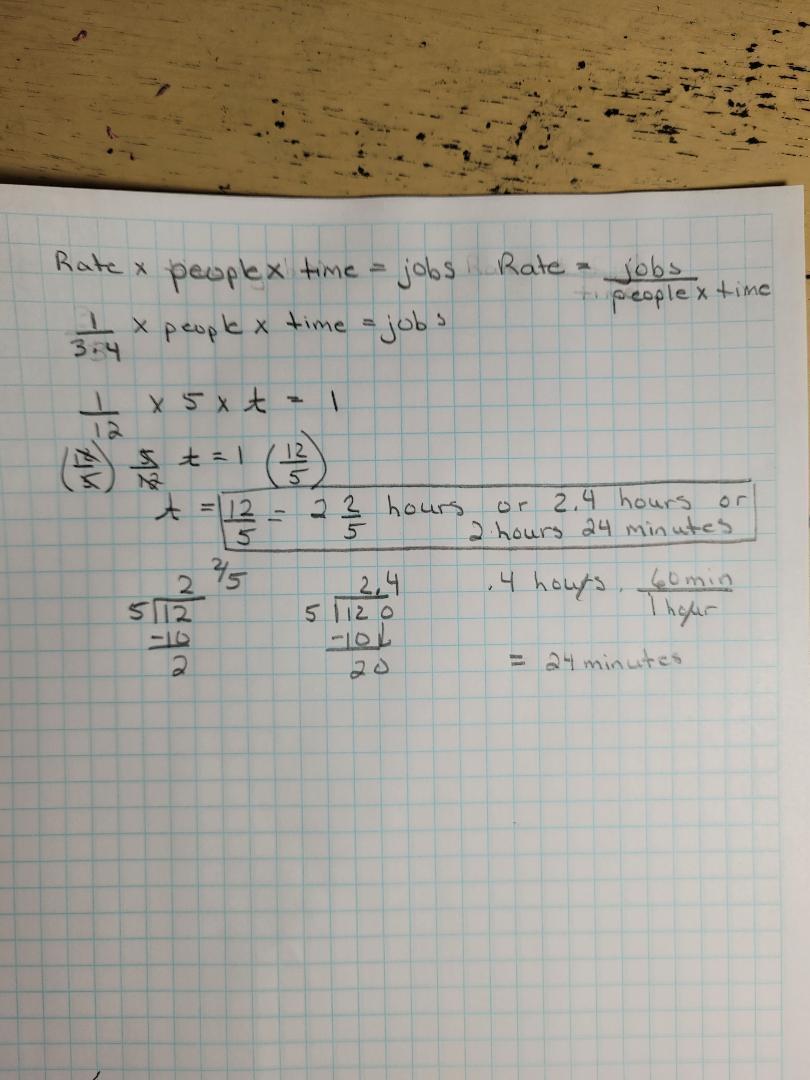 Rate x people x time = jobs Rate = jobs / people x time
1/3·4 x people x time = jobs
1/12 x 5 x t = 1
(12/5) 5/12 t = 1 (12/5)
t = 12/5 = 2 2/5 hours or 2.4 hours or
2 hours 24 minutes
2 2/5
5 12
-10
2
2.4
5 12 0
-10
20
.4 hours · 60 min / 1 hour
= 24 minutes